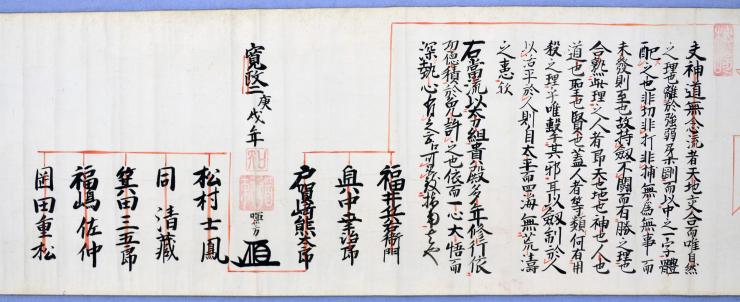 夫神道無念流者天地交合而唯自然
之理也離於強弱柔剛而以中之一字體
配之也非切非打非捕無為無事一而
未發則至也故持劔不闘而有勝之理也
合熟此理之人者即天也地也神也人也
道也聖也賢也蓋人者等類何有用
殺之理乎唯擊其邪耳以劔制於人
以治平於人則自太平而四海無荒濤
之恚
右當流以太刀組貴殿多年修行依
積於免許之也依而一心大悟而
深執心有之者可
寛政二庚戌年
福井兵右衛門
戸賀崎熊太郎
暉芳
松村士鳳
同 清藏
箕田三五郎
福嶋佐仲
岡田重松